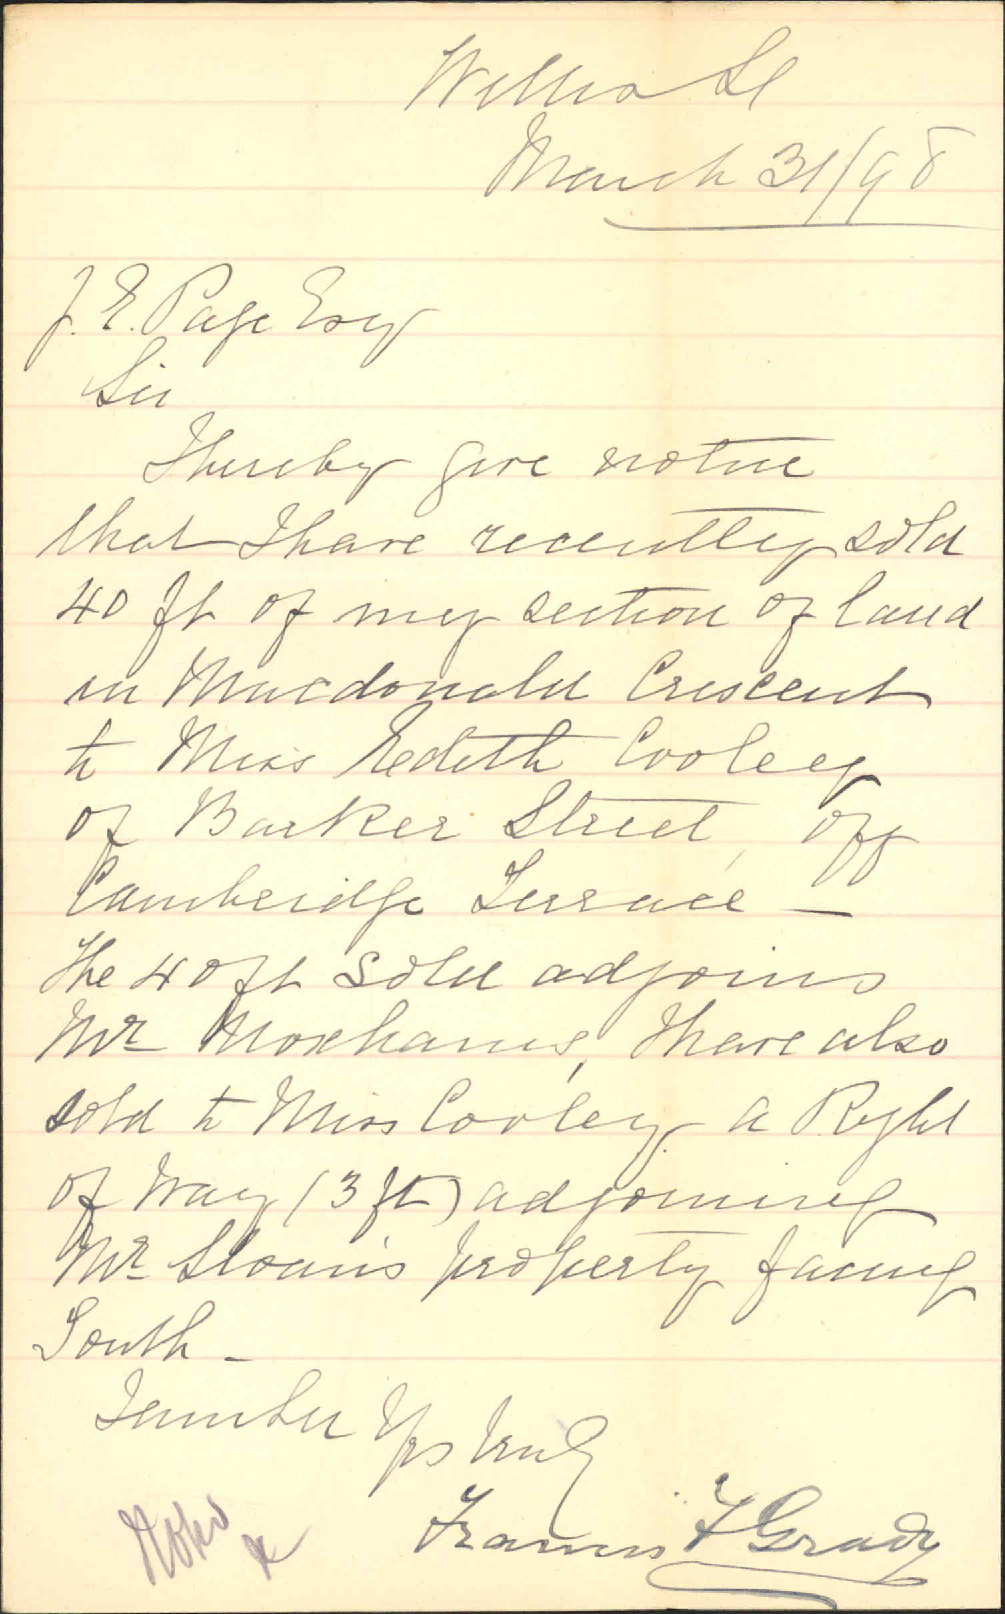 Willis St
March 31/98
J. E. Page Esq
Sir
I hereby give notice
that I have recently sold
40 ft of my section of land
in Macdonald Crescent
to Miss Eedith Cooley
of Barker Street, off
Cambridge Terrace —
The 40 ft sold adjoins
Mr Moxhams, I have also
sold to Miss Cooley a Right
of Way (3 ft) adjoining
Mr Sloan's property facing
South —
I am Sir Yrs truly
Francis F Grady
Noted